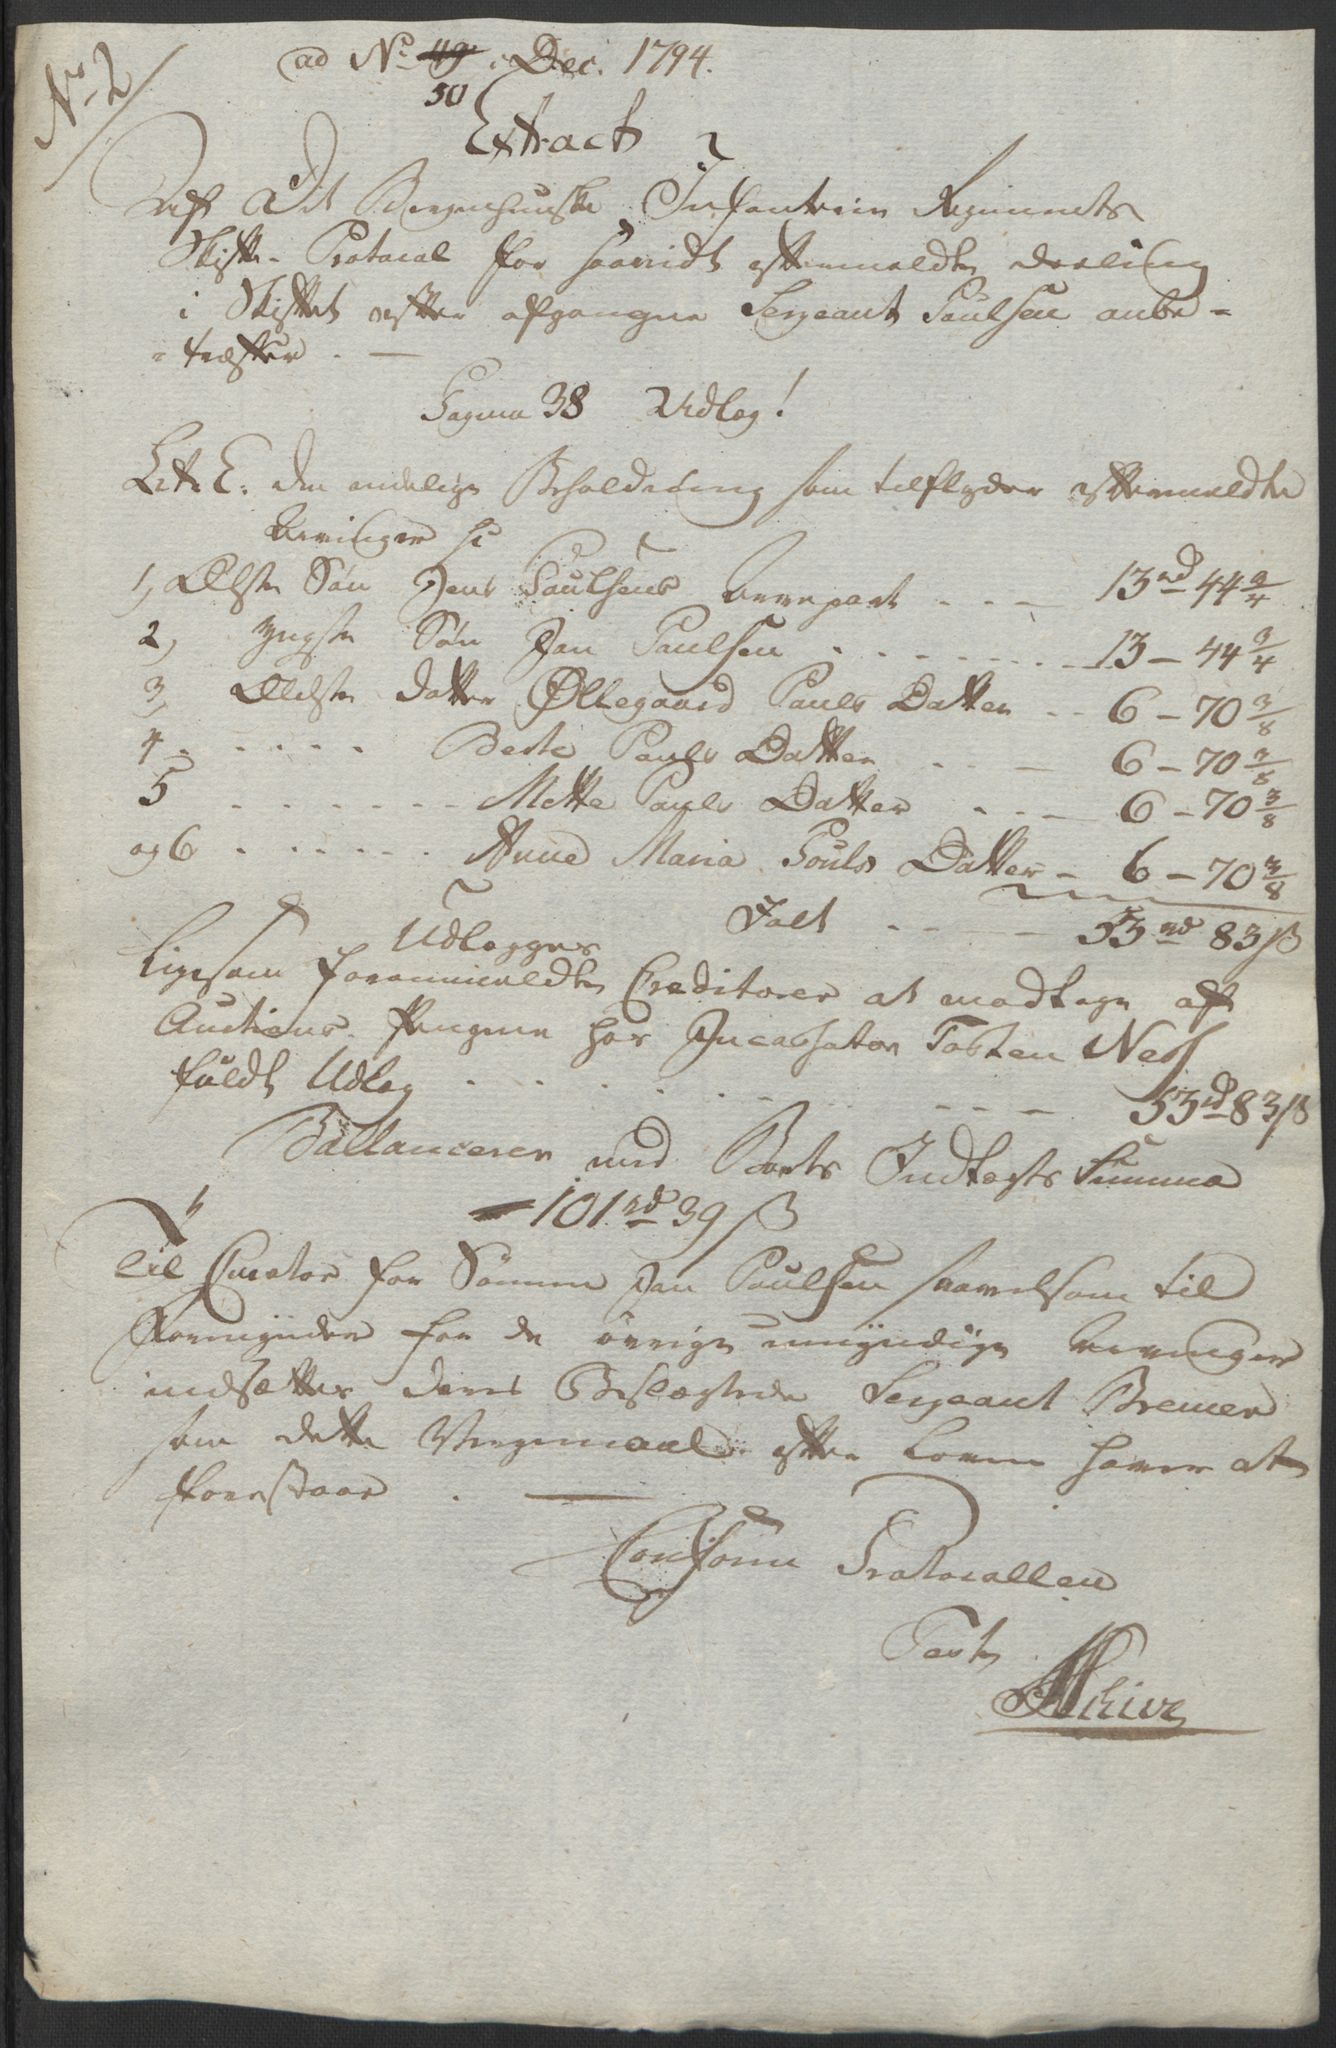 No 2
ad No 49 Dec. 1794.
50
Extract
Af Det Bergenhuuske Infanterie Regiments
Skifte-Protocol for saavidt eftermeldte deeling
i Skiftet efter afgangne Sergeant Paulsen anbe-
-træffer. —
Pagina 38 Udlæg!
Litr E. den endelige Beholdning som tilflyder eftermeldte
Arvinger
1, Ældste Søn Jens Paulsens Arvepart - - - 13 rd 44 3/4
2, Yngste Søn Jan Paulsen . . . . . . . 13 - 44 3/4
3, Ældste datter Øllegaard Pauls Datter - - 6 - 70 3/8
4 . . . . . Berte Pauls Datter - - - 6 - 70 3/8
5 . . . . . . Mette Pauls Datter - - - 6 - 70 3/8
og 6 . . . . . . Anne Maria Pouls Datter - 6 - 70 3/8
Ialt - - - - 53 rd 83 ß
Udlægges
Ligesom forommeldte Creditorer at modtage af
Auctions-Pengene hos Incassator Tosten Ness
fuldt Udlæg . . . . . . . - - - 53 rd 83 ß
Ballancerer med Boets Indtægts Summa
- 101 rd 39 ß
Til Curator for Sønnen Jan Paulsen saavelsom til
Formynder for de øvrige umyndige Arvinger
indsættes deres Beslægtede Sergeant Bremer
som dette Vergemaal efter Loven haver at
forestaae . —
Conform Protocollen
Test